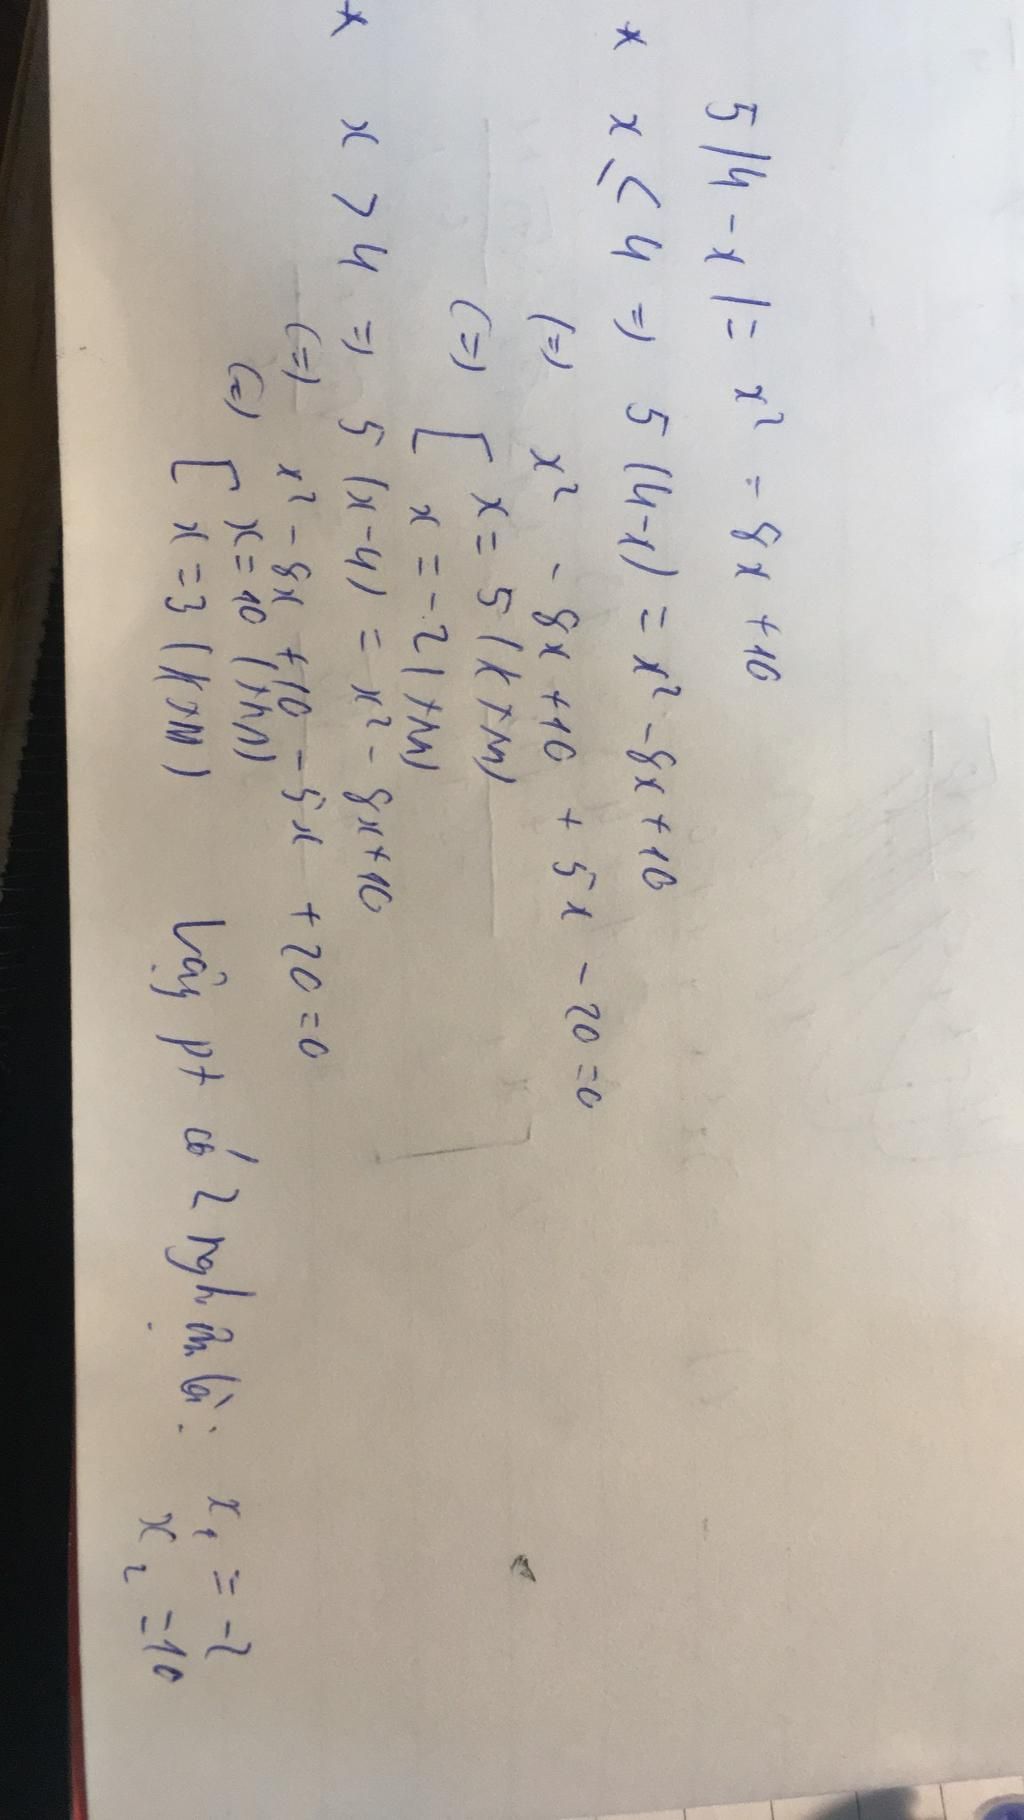 5|4-x| = x² - 8x + 10
* x ≤ 4 => 5(4-x) = x² - 8x + 10
(=) x² - 8x + 10 + 5x - 20 = 0
(=) [ x = 5 (KTM)
x = -2 (TM)
* x > 4 => 5(x-4) = x² - 8x + 10
(=) x² - 8x + 10 - 5x + 20 = 0
(=) [ x = 10 (TM)
x = 3 (KTM)
Vậy pt có 2 nghiệm là: x₁ = -2
x₂ = 10